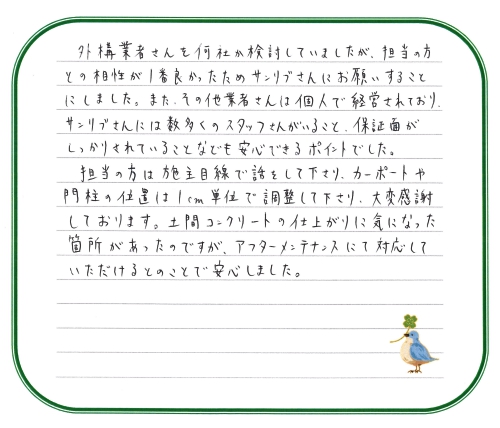 外構業者さんを何社か検討していましたが、担当の方
との相性が1番良かったためサンリブさんにお願いすること
にしました。また、その他業者さんは個人で経営されており、
サンリブさんには数多くのスタッフさんがいること、保証面が
しっかりされていることなども安心できるポイントでした。
担当の方は施主目線で話をして下さり、カーポートや
門柱の位置は1cm単位で調整して下さり、大変感謝
しております。土間コンクリートの仕上がりに気になった
箇所があったのですが、アフターメンテナンスにて対応して
いただけるとのことで安心しました。